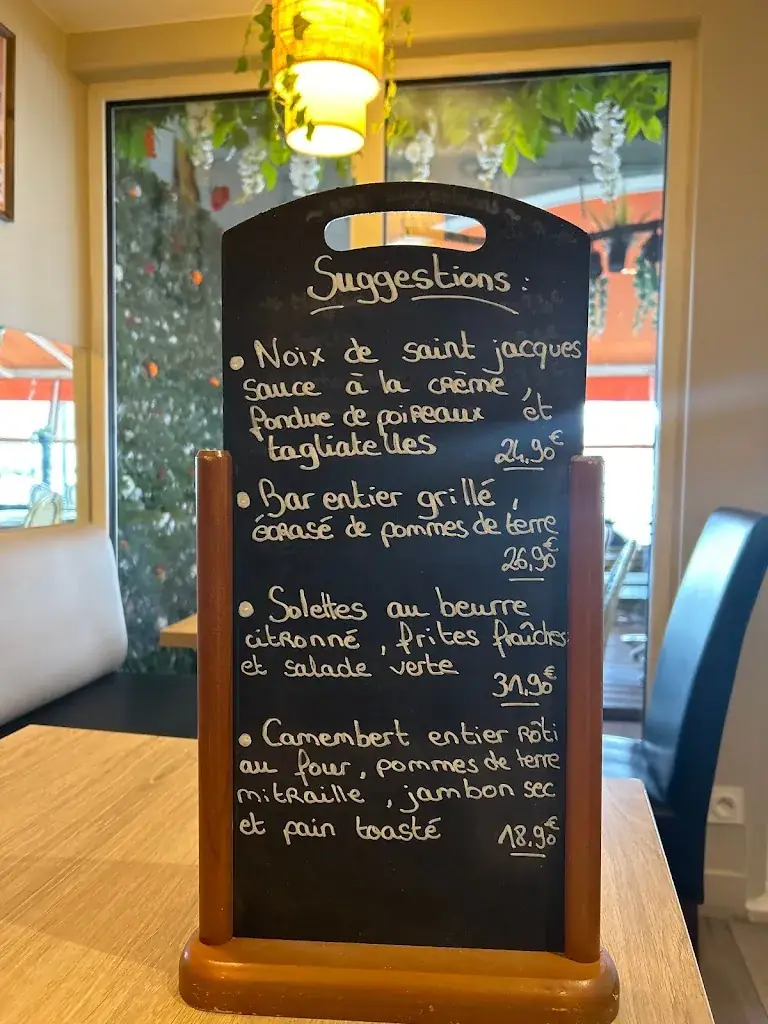 Suggestions :
• Noix de saint jacques
sauce à la crème,
fondue de poireaux et
tagliatelles 24.90€
• Bar entier grillé,
écrasé de pommes de terre
26.90€
• Solettes au beurre
citronné, frites fraîches
et salade verte
31.90€
• Camembert entier rôti
au four, pommes de terre
mitraille, jambon sec
et pain toasté 18.90€